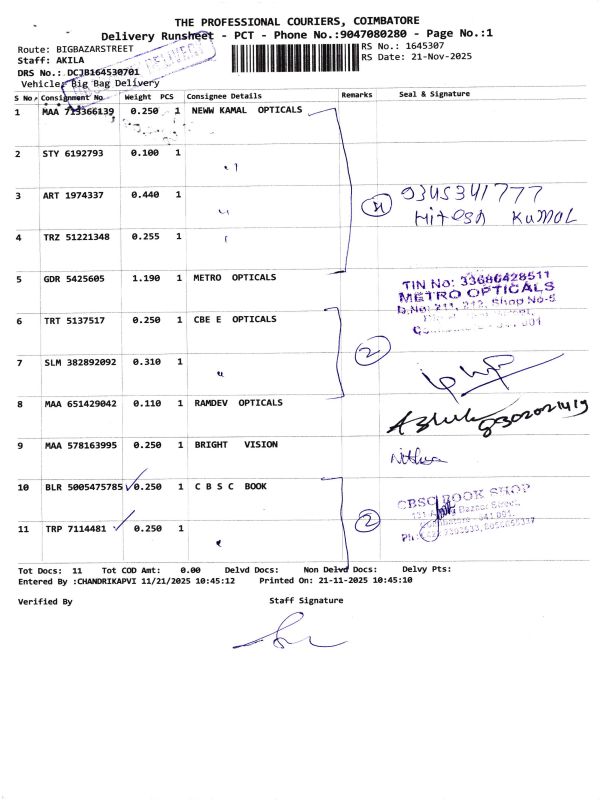 THE PROFESSIONAL COURIERS, COIMBATORE
Delivery Runsheet - PCT - Phone No.:9047080280 - Page No.:1
Route: BIGBAZARSTREET
RS No.: 1645307
Staff: AKILA
RS Date: 21-Nov-2025
DRS No.: DCJB164530701
DELIVERY
Vehicle: Big Bag Delivery
S No. Consignment No Weight PCS Consignee Details Remarks Seal & Signature
1 MAA 713366139 0.250 1 NEWW KAMAL OPTICALS
2 STY 6192793 0.100 1 "
3 ART 1974337 0.440 1 "
4 9345341777
Hitesh Kumal
4 TRZ 51221348 0.255 1 "
5 GDR 5425605 1.190 1 METRO OPTICALS
TIN No: 33686428511
METRO OPTICALS
D.No: 211, 212, Shop No-5
6 TRT 5137517 0.250 1 CBE E OPTICALS
2
7 SLM 382892092 0.310 1 "
8 MAA 651429042 0.110 1 RAMDEV OPTICALS
9 MAA 578163995 0.250 1 BRIGHT VISION
10 BLR 5005475785 0.250 1 C B S C BOOK
CBSC BOOK SHOP
Bazaar Street,
Coimbatore - 641 001.
2
11 TRP 7114481 0.250 1 "
Tot Docs: 11 Tot COD Amt: 0.00 Delvd Docs: Non Delvd Docs: Delvy Pts:
Entered By :CHANDRIKAPVI 11/21/2025 10:45:12 Printed On: 21-11-2025 10:45:10
Verified By Staff Signature